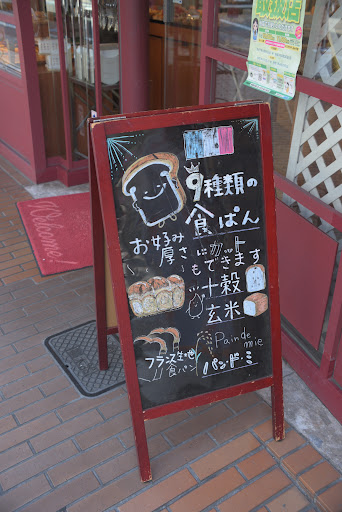 9種類の
食ぱん
お好み
厚さ
にカット
もできます
十穀
玄米
フランス生地
食パン
Pain de
mie
パン・ド・ミ
Welcome!